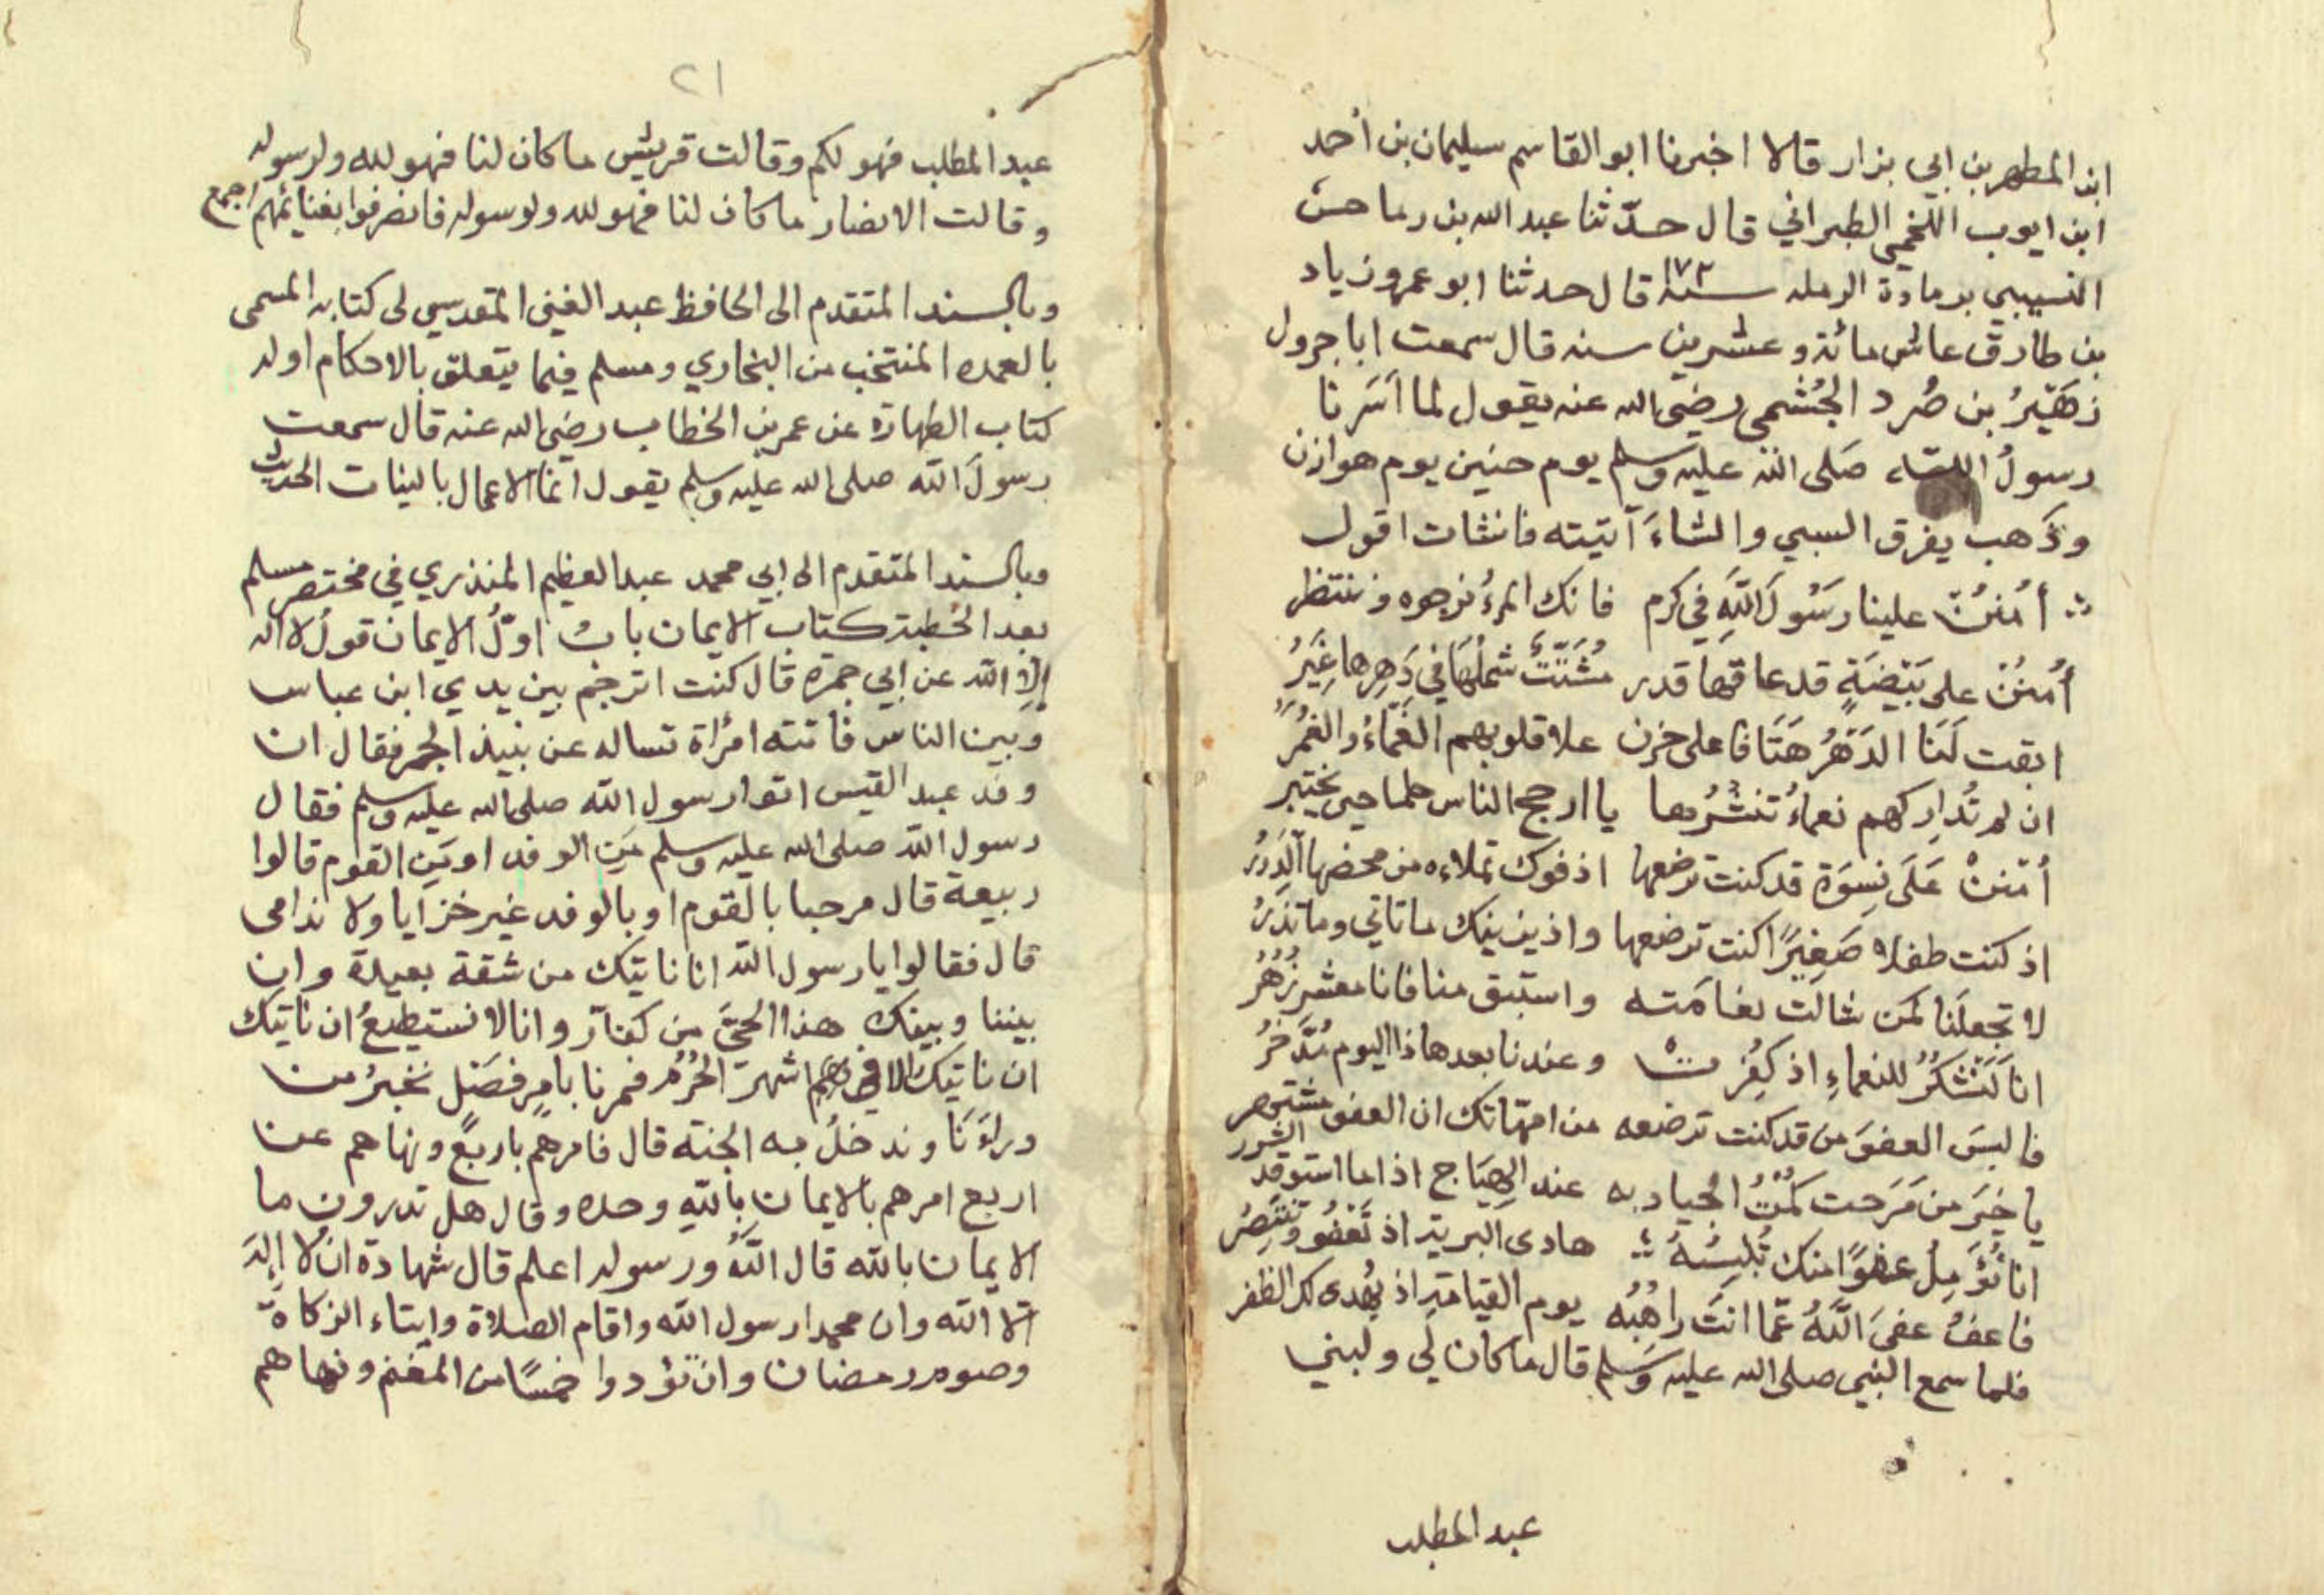 ابن المطهر بن ابي بزار قالا اخبرنا ابو القاسم سليمان بن أحمد
ابن ايوب اللخمي الطبراني قال حدّثنا عبد الله بن رماحس
برمادة الرمله سنة قال حدثنا ابو عمرو زياد
بن طارق عاش مائة وعشرين سنه قال سمعت ابا جرول
زهَيْرُ بن صُرد الجُشمي رضي الله عنه يقول لما أسَرنا
رسولُ الله صَلى الله عليه وسلم يوم حنين يوم هوازن
وذَهب يفرق السبي والشاءَ آتيته فانشات اقول
أُمْنُنْ علينا رسُولَ اللّهِ في كرم فانك المرءُ نرجوه وننتظر
أُمنُنْ على بَيْضَةٍ قد عاقها قدر مُشَتَّتٌ شملُهَا في دَهرِها غِيَرُ
ابقت لَنَا الدَهْرُ هَتَافا على حزن علا قلوبهم الغَمَّاءُ والغَمُرُ
ان لم تُدارِكهم نعماءُ تنشُرُها يا ارجح الناس حلما حين يختبر
أمْننْ عَلَى نِسوَة قد كنت ترضعها اذ فوك تملاءه من محضها الدِرَرُ
اذ كنت طفلا صَغِيرًا كنت ترضعها واذ يزينك ما تاتي وما تذرُ
لا تجعلَنا كمَن شالَت نعامَته واستبق منا فانا معشر زُهُرُ
انا لَنَشْكُرُ للنعماءِ اذ كفِرُت وعندنا بعد هاذا اليوم مُدَّخرُ
فالبسَ العفوَ من قد كنت ترضعه من امهّاتك ان العفو مشتهر
يا خيَر من مَرَحت كُمْتُ الجياد به عند الهِيَاج اذا ما استوقد الشرر
انا نُؤَمِلُ عفوًا منك تُلبِسُهُ هادى البرية اذ تَعْفُو وتَنْتَصِرُ
فاعفُ عفىَ اللَّهُ عمّا انتَ راهُبُه يوم القيامةِ اذ يُهدى لك الظفر
فلما سمع النبي صلى الله عليه وسَلم قال ما كان لي ولبني
عبد المطلب
٢١
عبد المطلب فهو لكم وقالت قريش ما كان لنا فهو لله ولرسوله
وقالت الانصار ما كان لنا فهو لله ولرسوله فانصرفوا بغنائمهم اجمع
وبالسند المتقدم الى الحافظ عبد الغني المقدسي لى كتابه المسمى
بالعمده المنتخب من البخاري ومسلم فيما يتعلق بالاحكام اوله
كتاب الطهارة عن عمر بن الخطاب رضي الله عنه قال سمعت
رسولَ الله صلى الله عليه وسلم يقول انما الاعمال بالينات الحديث
وبالسند المتقدم الى ابي محمد عبد العظيم المنذري في مختصر مسلم
بعد الخطبة كتاب الايمان بابُ اوّلُ الايمان قولُ لا اله
إلا الله عن ابي جمرة قال كنت اترجم بين يدي ابن عباس
وَبين الناس فاتته امرُاة تساله عن نبيذ الجر فقال ان
وفد عبد القيس اتوا رسول الله صلى الله عليه وسلم فقال
رسول الله صلى الله عليه وسلم مَنِ الوفد او مَنِ القوم قالوا
ربيعة قال مرحبا بالقوم او بالوفد غير خزايا ولا ندامى
قال فقالوا يا رسول الله انا ناتيك من شقة بعيدة وان
بيننا وبينك هذا الحيَّ من كفار وانا لا نستيطيعُ ان ناتيك
ان ناتيك الا في اشهرَ الحُرُم فمرنا بامٍر فصَل نخبرُ من
وراءَنَا وندخلُ به الجنة قال فامرهم باربعٍ ونهاهم عن
اربع امرهم بالايمان باللهِ وحده وقال هل تدرون ما
الايمان بالله قال اللَّهُ ورسوله اعلم قال شهادة ان لا إلهَ
الا الله وان محمدا رسول الله واقام الصلاة وايتاء الزكاة
وصوم رمضان وان تؤدوا خمسًا من المغنم ونهاهم